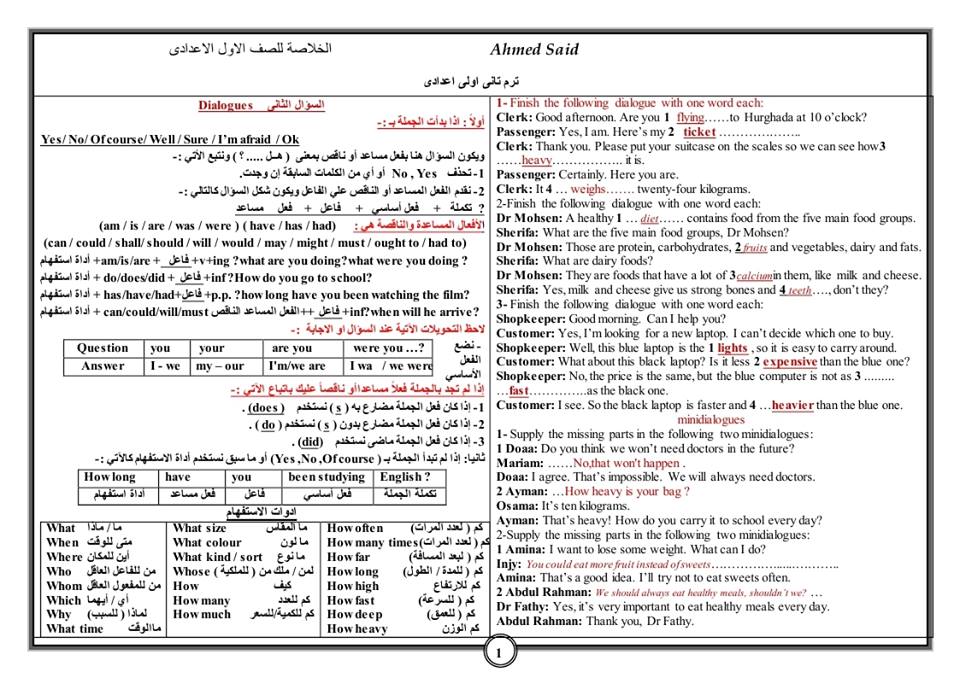 الخلاصة للصف الاول الاعدادى Ahmed Said
ترم تانى اولى اعدادى
السؤال الثانى Dialogues
أولاً : اذا بدأت الجملة بـ :-
Yes/ No/ Of course/ Well / Sure / I'm afraid / Ok
ويكون السؤال هنا بفعل مساعد أو ناقص بمعنى ( هـل ..... ؟ ) ونتبع الآتي :-
1- تحذف No , Yes أو أي من الكلمات السابقة إن وجدت.
2- نقدم الفعل المساعد أو الناقص علي الفاعل ويكون شكل السؤال كالتالي :-
? تكملة + فعل أساسي + فاعل + فعل مساعد
الأفعال المساعدة والناقصة هي : (am / is / are / was / were ) ( have / has / had)
(can / could / shall/ should / will / would / may / might / must / ought to / had to)
أداة استفهام +am/is/are + فاعل +v+ing ?what are you doing?what were you doing ?
أداة استفهام + do/does/did + فاعل +inf? How do you go to school?
أداة استفهام + has/have/had+فاعل+p.p. ?how long have you been watching the film?
أداة استفهام + can/could/will/must الفعل المساعد الناقص++ فاعل +inf?when will he arrive?
لاحظ التحويلات الآتية عند السؤال او الاجابة :-
- نضع الفعل الأساسي
Question you your are you were you …?
Answer I - we my – our I'm/we are I wa / we were
إذا لم تجد بالجملة فعلاً مساعدا أو ناقصاً عليك باتباع الآتي :-
1- إذا كان فعل الجملة مضارع به ( s ) نستخدم (does ) .
2- إذا كان فعل الجملة مضارع بدون ( s ) نستخدم ( do ) .
3- إذا كان فعل الجملة ماضى نستخدم (did) .
ثانيا: إذا لم تبدأ الجملة بـ ( Yes ,No ,Of course) أو ما سبق نستخدم أداة الاستفهام كالآتي :-
How long have you been studying English ?
أداة استفهام فعل مساعد فاعل فعل أساسي تكملة الجملة
ادوات الاستفهام
What ما / ماذا What size ما المقاس How often كم ( لعدد المرات)
When متى للوقت What colour ما لون How many times كم ( لعدد المرات)
Where أين للمكان What kind / sort ما نوع How far كم ( لبعد المسافة)
Who من للفاعل العاقل Whose لمن / ملك من ( للملكية ) How long كم ( للمدة / الطول)
Whom من للمفعول العاقل How كيف How high كم للارتفاع
Which أي / أيهما How many كم للعدد How fast كم ( للسرعة)
Why لماذا ( للسبب) How much كم للكمية/للسعر How deep كم ( للعمق)
What time ما الوقت How heavy كم الوزن
1- Finish the following dialogue with one word each:
Clerk: Good afternoon. Are you 1 flying……to Hurghada at 10 o'clock?
Passenger: Yes, I am. Here's my 2 ticket ………………..
Clerk: Thank you. Please put your suitcase on the scales so we can see how3
……heavy……………. it is.
Passenger: Certainly. Here you are.
Clerk: It 4 … weighs……. twenty-four kilograms.
2-Finish the following dialogue with one word each:
Dr Mohsen: A healthy 1 … diet…… contains food from the five main food groups.
Sherifa: What are the five main food groups, Dr Mohsen?
Dr Mohsen: Those are protein, carbohydrates, 2 fruits and vegetables, dairy and fats.
Sherifa: What are dairy foods?
Dr Mohsen: They are foods that have a lot of 3calciumin them, like milk and cheese.
Sherifa: Yes, milk and cheese give us strong bones and 4 teeth…., don't they?
3- Finish the following dialogue with one word each:
Shopkeeper: Good morning. Can I help you?
Customer: Yes, I'm looking for a new laptop. I can't decide which one to buy.
Shopkeeper: Well, this blue laptop is the 1 lights , so it is easy to carry around.
Customer: What about this black laptop? Is it less 2 expensive than the blue one?
Shopkeeper: No, the price is the same, but the blue computer is not as 3 .........
…fast………….as the black one.
Customer: I see. So the black laptop is faster and 4 …heavier than the blue one.
minidialogues
1- Supply the missing parts in the following two minidialogues:
1 Doaa: Do you think we won't need doctors in the future?
Mariam: ……No,that won't happen .
Doaa: I agree. That's impossible. We will always need doctors.
2 Ayman: …How heavy is your bag ?
Osama: It's ten kilograms.
Ayman: That's heavy! How do you carry it to school every day?
2-Supply the missing parts in the following two minidialogues:
1 Amina: I want to lose some weight. What can I do?
Injy: You could eat more fruit instead of sweets……………......…………
Amina: That's a good idea. I'll try not to eat sweets often.
2 Abdul Rahman: We should always eat healthy meals, shouldn't we? …
Dr Fathy: Yes, it's very important to eat healthy meals every day.
Abdul Rahman: Thank you, Dr Fathy.
1